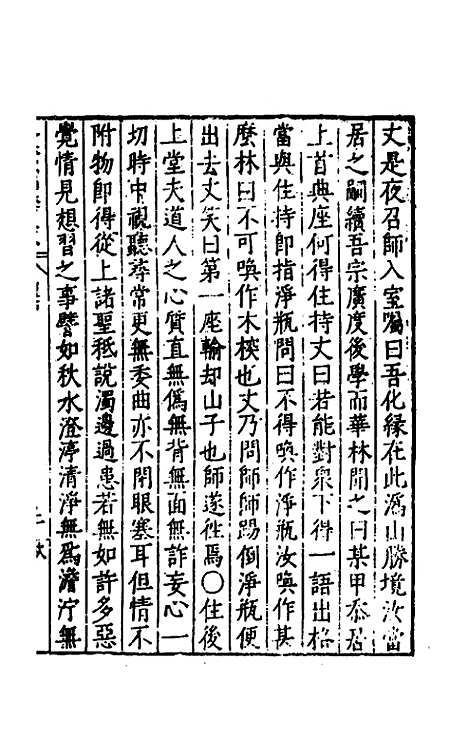 丈是夜召師入室囑曰吾化緣在此溈山勝境汝當
居之嗣續吾宗廣度後學而華林聞之曰某甲忝居
上首典座何得住持丈曰若能對衆下得一語出格
當與住持即指淨瓶問曰不得喚作淨瓶汝喚作甚
麽林曰不可喚作木𣔻也丈乃問師師踢倒淨瓶便
出去丈笑曰第一座輸却山子也師遂往焉〇住後
上堂夫道人之心質直無僞無背無面無詐妄心一
切時中視聽尋常更無委曲亦不閉眼塞耳但情不
附物即得從上諸聖秪說濁邊過患若無如許多惡
覺情見想習之事譬如秋水澄渟清淨無爲澹泞無